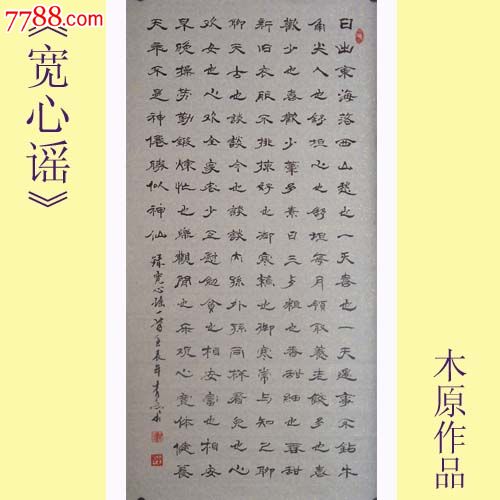 7788.com
《宽心谣》
日出東海落西山愁也一天喜也一天遇事不鉆牛
角尖人也舒坦心也舒坦每月領取養老錢多也喜
歡少也喜歡少葷多素日三歺粗也香甜細也香甜
新旧衣服不挑揀好也御寒賴也御寒常与知己聊
聊天古也談談今也談談内孫外孫同样看兒也心
欢女也心欢全家老少互慰勉貧也相安富也相安
早晚操劳勤鍛煉忙也樂觀闲也乐观心寬体健養
天年不是神僊勝似神仙 錄寬心謠一首壬辰年
木原作品